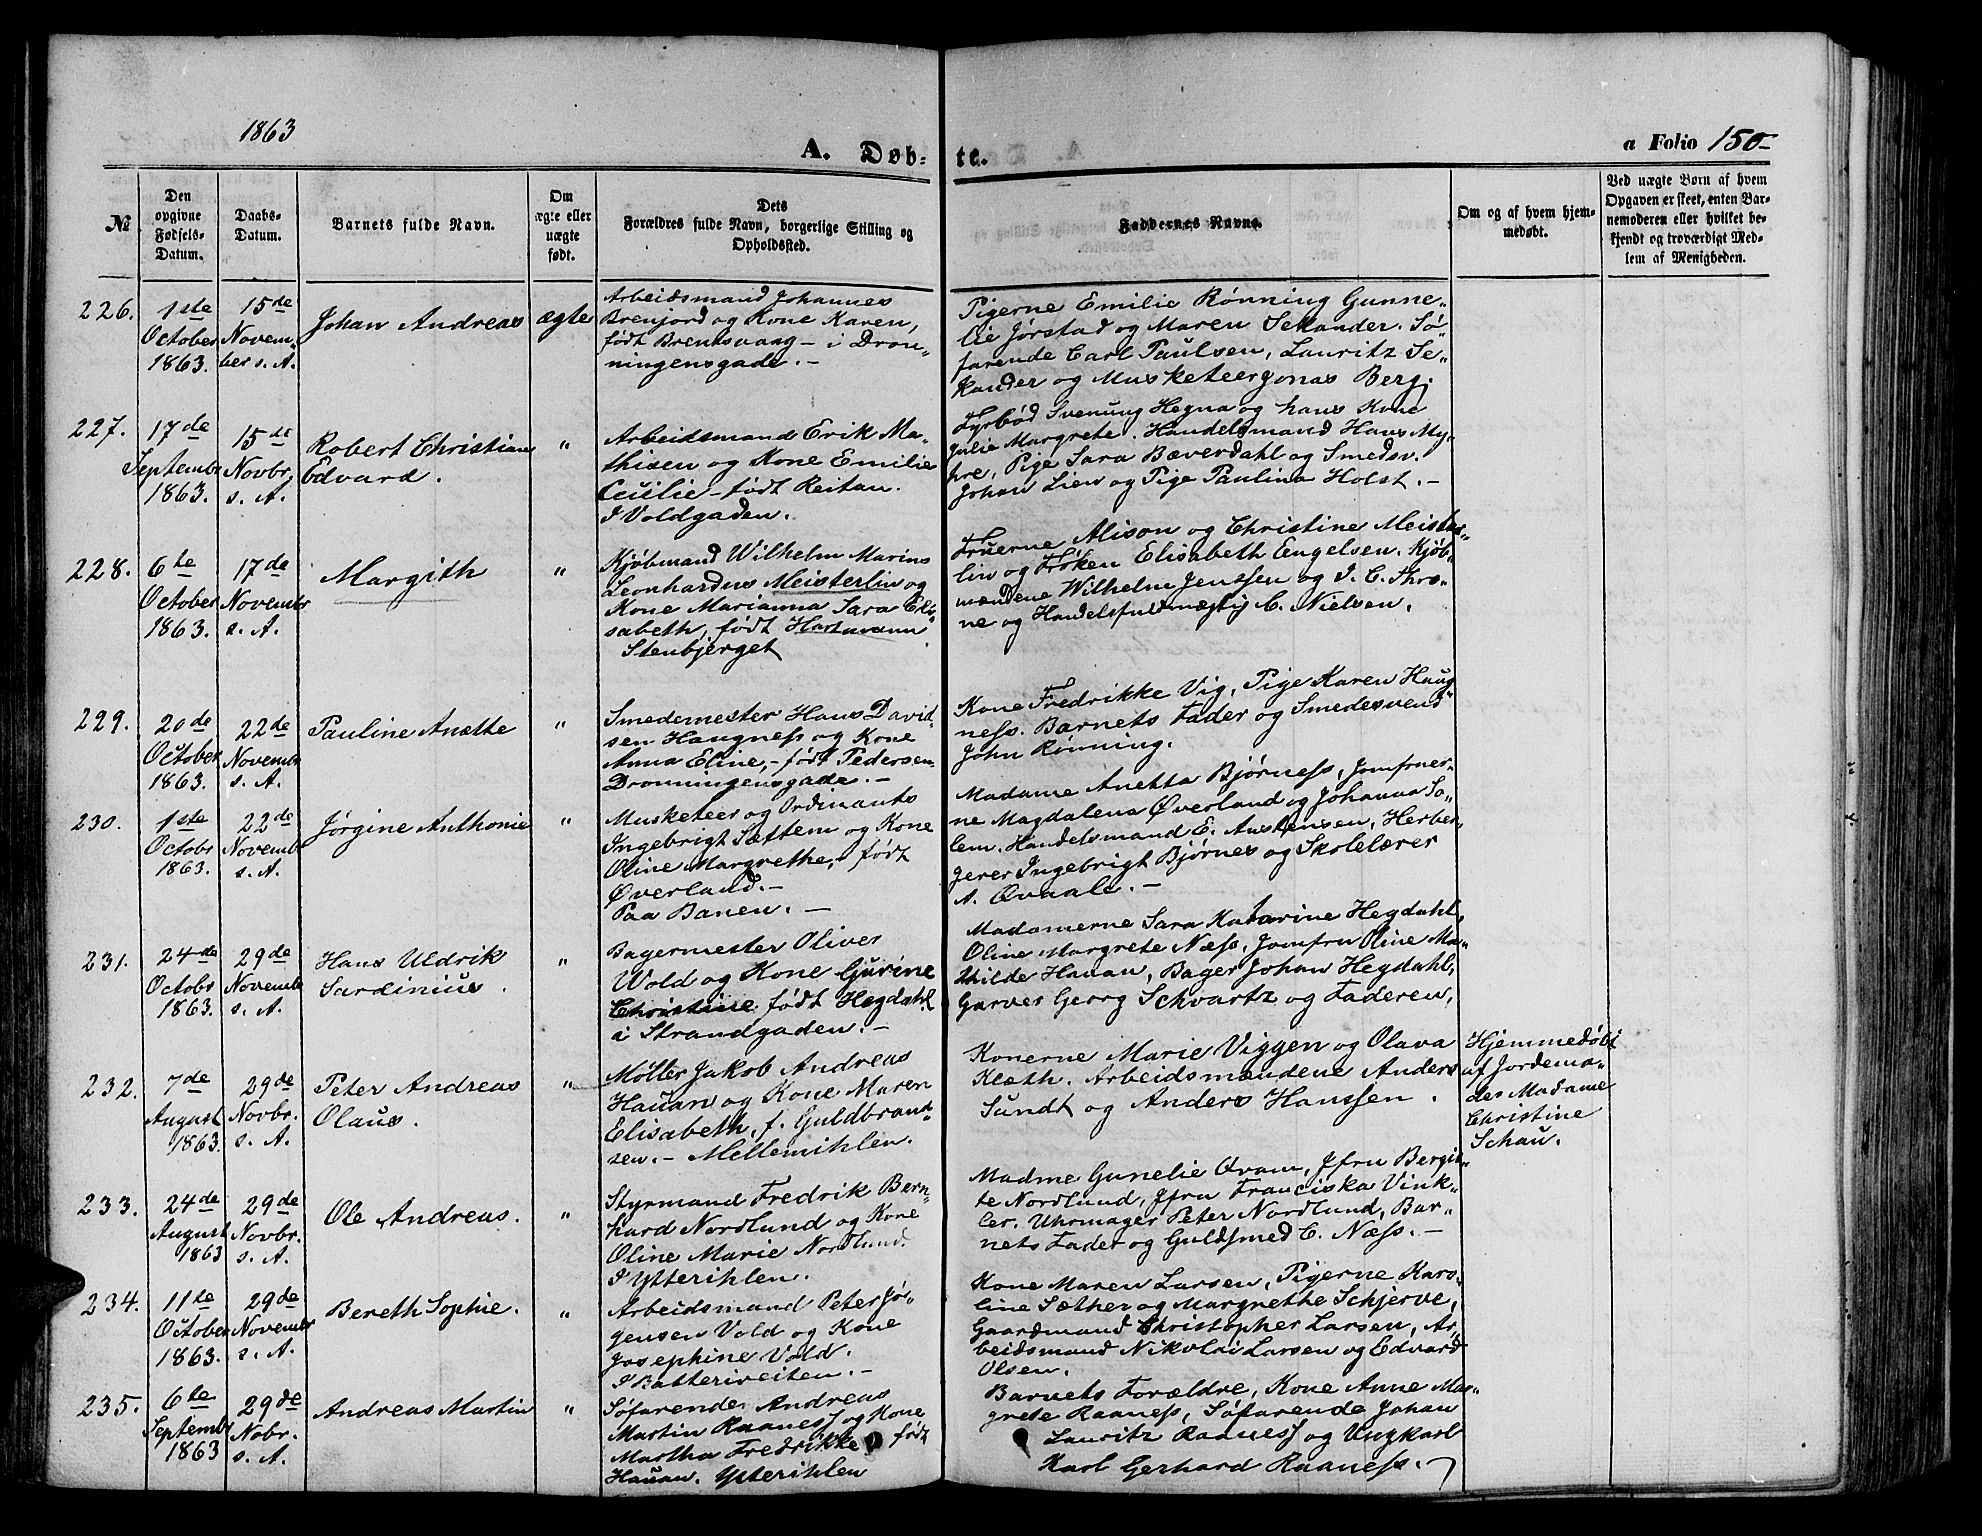 1863
A. Døb-
te.
a Folio 150
№
Den
opgivne
Fødsels-
Datum.
Daabs-
Datum.
Barnets fulde Navn.
Om
ægte eller
uægte
født.
Dets
Forældres fulde Navn, borgerlige Stilling og
Opholdssted.
Faddernes Navne.
Om og af hvem hjem-
medøbt.
Ved uægte Børn af hvem
Opgaven er skeet, enten Bar-
nemoderen eller hvilket be-
kjendt og troværdigt Med-
lem af Menigheden.
226.
1ste
October
1863.
15de
Novem-
ber s. A.
Johan Andreas
ægte
Arbeidsmand Johannes
Brenjord og Kone Karen,
født Brentsvaag - i Dron-
ningensgade. -
Pigerne Emilie Rønning Gunne-
lie Jørstad og Maren Sekander. Sø-
farende Carl Paulsen, Lauritz Se-
kander og Musketeer Jonas Berg.
227.
17de
Septembr
1863.
15de
Novbr.
s. A.
Robert Christian
Edvard.
"
Arbeidsmand Erik Ma-
thisen og Kone Emilie
Cecilie - født Reitan.
I Voldgaden.
Fyrbød Svenung Hegna og hans Kone
Julie Margrete. Handelsmand Hans My-
hre, Pige Sara Bæverdahl og Smedsv.
Johan Lien og Pige Paulina Holst. -
228.
6te
October
1863.
17de
Novembr
s. A.
Margith
"
Kjøbmand Wilhelm Marius
Leonhardus Meisterlin og
Kone Marianna Sara Eli-
sabeth, født Hartmann
Stenbjerget
Fruerne Alison og Christine Meister-
lin og Frøken Elisabeth Engelsen. Kjøb-
mændene Wilhelm Jenssen og I. C. Thro-
ne og Handelsfuldmægtig C. Nielsen.
229.
20de
October
1863.
22de
Novembr
s. A.
Pauline Anette
"
Smedemester Hans David-
sen Haugness og Kone
Anna Eline, - født Pedersen
Dronningensgade. -
Kone Fredrikke Vig, Pige Karen Haug-
ness. Barnets Fader og Smedesvend
John Rønning.
230.
1ste
Octobr
1863.
22de
Novembr
s. A.
Jørgine Anthonie
"
Musketeer og Ordinants
Ingebrigt Sættem og Kone
Oline Margrethe, født
Øverland. -
Paa Banen. -
Madame Anetta Bjørness, Jomfruer-
ne Magdalena Øverland og Johanna So-
lem. Handelsmand E. Austensen, Herber-
gerer Ingebrigt Bjørnes og Skolelærer
A. Qvaale. -
231.
24de
Octobr
1863.
29de
Novembr
s. A.
Hans Uldrik
Sardinius.
"
Bagermester Oliver
Wold og Kone Gurine
Christine født Hegdahl
i Strandgaden. -
Madamerne Sara Katarine Hegdahl,
Oline Margrete Næss, Jomfru Oline Ma-
thilde Hauan, Bager Johan Hegdahl,
Garver Georg Schvartz og Faderen,
232.
7de
August
1863.
29de
Novbr.
s. A.
Peter Andreas
Olaus.
"
Møller Jakob Andreas
Hauan og Kone Maren
Elisabeth, f. Guldbrant-
sen. - Mellemihlen.
Konerne Marie Viggen og Olava
Klæth. Arbeidsmændene Anders
Sundt og Anders Hanssen.
Hjemmedøbt
af Jordema-
des Madame
Christine
Schau.
233.
24de
August
1863
29de
Novbr.
s. A.
Ole Andreas.
"
Styrmand Fredrik Bern-
hard Nordlund og Kone
Oline Marie Nordlund.
I Ytterihlen.
Madme Gunelie Qvam, Jfru Bergit-
te Nordlund, Jfru Franciska Vink-
ler. Uhrmager Peter Nordlund, Bar-
nets Fader og Guldsmed C. Næss. -
234.
11te
October
1863.
29de
Novembr
s. A.
Bereth Sophie.
"
Arbeidsmand Peter Jør-
gensen Vold og Kone
Josephine Vold.
I Batteriveiten. -
Kone Maren Larsen, Pigerne Karo-
line Sæther og Margrethe Schjerve,
Gaardmand Christopher Larsen, Ar-
beidsmand Nikolai Larsen og Edvard
Olsen.
235.
6te
Septembr
1863
29de
Nobr.
s. A.
Andreas Martin
"
Søfarende Andreas
Martin Raaness og Kone
Martha Fredrikke født
Hauan. Ytterihlen
Barnets Forældre, Kone Anne Mar-
grete Raaness, Søfarende Johan
Lauritz Raaness og Ungkarl
Karl Gerhard Raaness. -